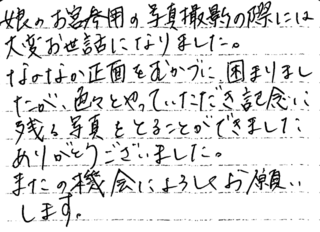 娘のお宮参用の写真撮影の際には
大変お世話になりました。
なかなか正面をむかづに困まりまし
たが、色々とやっていただき記念に
残る写真をとることができました
ありがとうございました。
またの機会によろしくお願い
します。